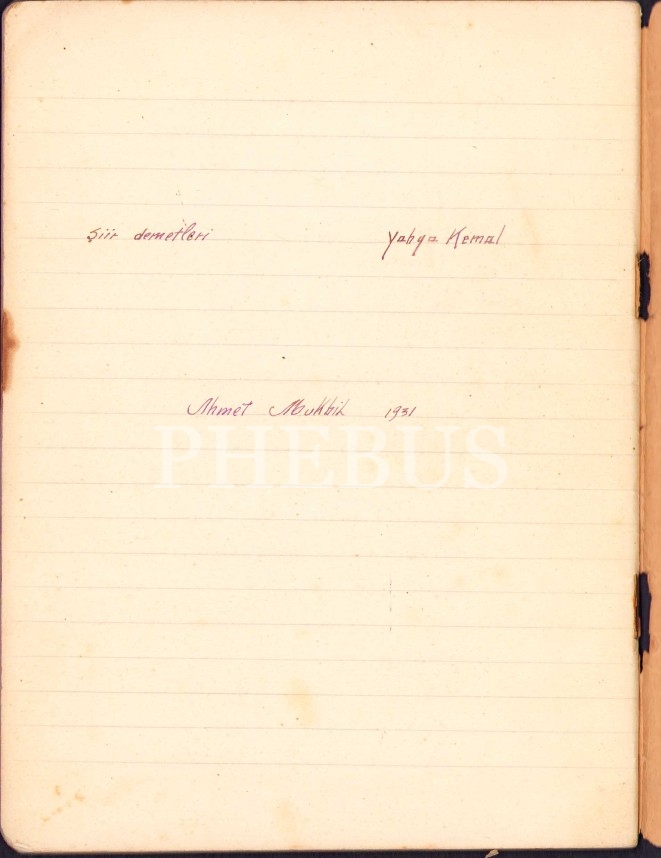 Şiir demetleri Yahya Kemal
Ahmet Mukbil 1931
PHEBUS